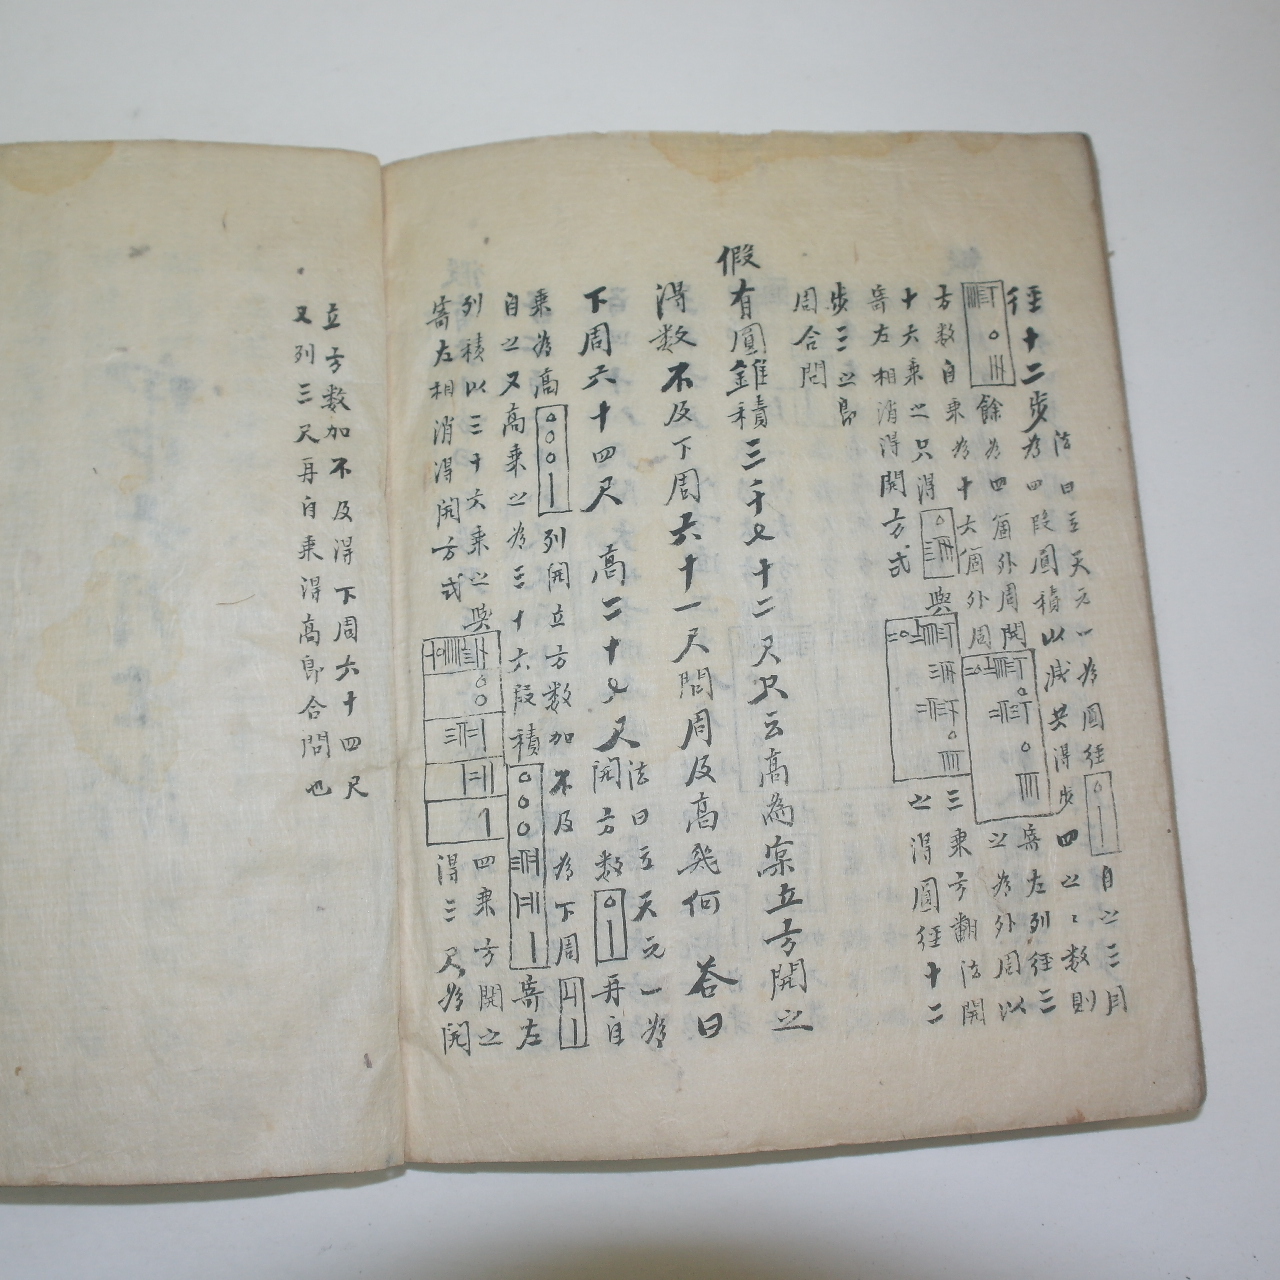 徑十二步
法曰立天元一為圓徑自之三因
為四段圓積以減共得步四之〻數則
餘為四箇外周開寄左列徑三
方數自乘為十六箇外周之為外周以
十六乘之只得與三乘方翻法開
寄左相消得開方式之得圓徑十二
步三之即
周合問
假有圓錐積三千〇七十二尺只云高為實立方開之
得數不及下周六十一尺問周及高幾何 答曰
下周六十四尺 高二十七尺
法曰立天元一為
開方數再自
乘為高列開立方數加不及為下周
自之又高乘之為三十六段積寄左
列積以三十六乘之與四乘方開之
寄左相消得開方式得三尺為開
立方數加不及得下周六十四尺
又列三尺再自乘得高即合問也